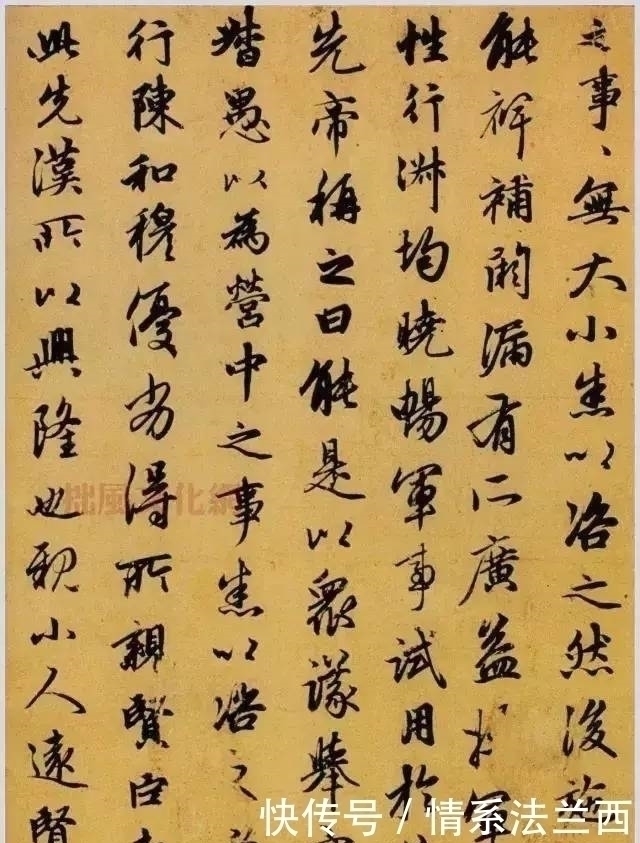 之事、無大小悉以咨之然後施
能裨補闕漏有所廣益將軍
性行淑均曉暢軍事試用於
先帝稱之曰能是以眾議舉
督愚以為營中之事悉以咨之
行陳和穆優劣得所親賢臣
此先漢所以興隆也親小人遠賢
拙風文化網
快传号 / 情系法兰西